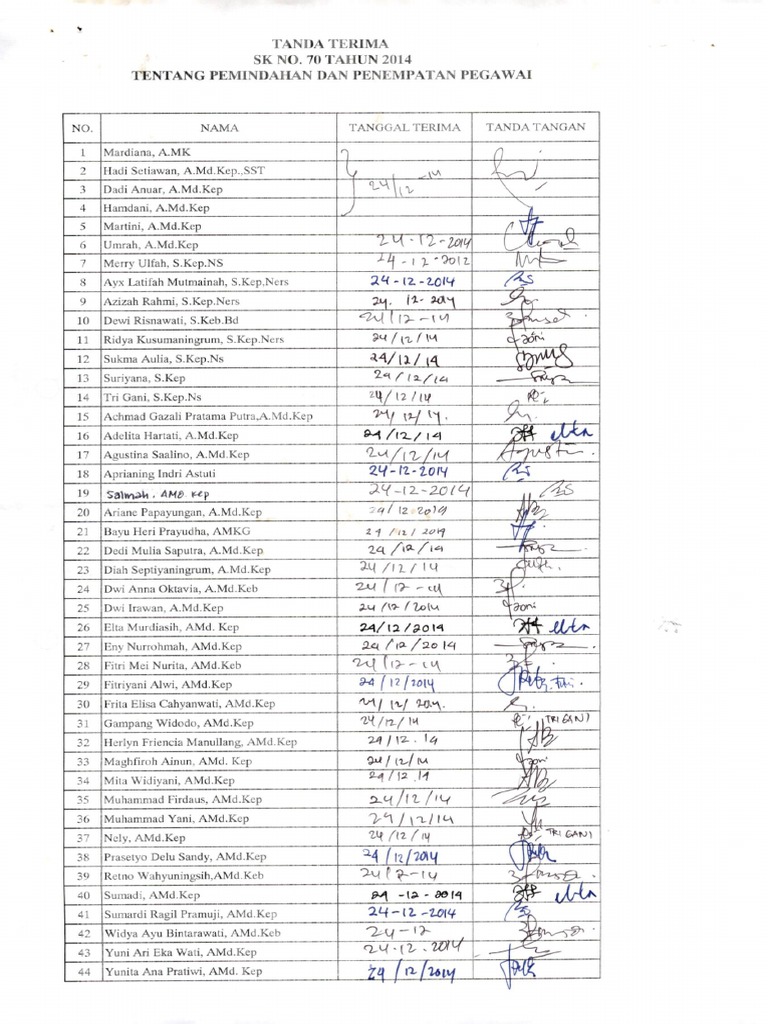 TANDA TERIMA
SK NO. 70 TAHUN 2014
TENTANG PEMINDAHAN DAN PENEMPATAN PEGAWAI
NO. NAMA TANGGAL TERIMA TANDA TANGAN
1 Mardiana, A.MK
2 Hadi Setiawan, A.Md.Kep.,SST
3 Dadi Anuar, A.Md.Kep 24/12-14
4 Hamdani, A.Md.Kep
5 Martini, A.Md.Kep
6 Umrah, A.Md.Kep 24-12-2014
7 Merry Ulfah, S.Kep.NS 24-12-2012
8 Ayx Latifah Mutmainah, S.Kep,Ners 24-12-2014
9 Azizah Rahmi, S.Kep.Ners 24. 12-2014
10 Dewi Risnawati, S.Keb.Bd 24/12-14
11 Ridya Kusumaningrum, S.Kep.Ners 24/12/14
12 Sukma Aulia, S.Kep.Ns 24/12/14
13 Suriyana, S.Kep 24/12/14
14 Tri Gani, S.Kep.Ns 24/12/14
15 Achmad Gazali Pratama Putra,A.Md.Kep 24/12/14.
16 Adelita Hartati, A.Md.Kep 24/12/14
17 Agustina Saalino, A.Md.Kep 24/12/14 Agustin.
18 Aprianing Indri Astuti 24-12-2014
19 Salmah. AMD Kep 24-12-2014
20 Ariane Papayungan, A.Md.Kep 24/12-2014
21 Bayu Heri Prayudha, AMKG 24/12/2014
22 Dedi Mulia Saputra, A.Md.Kep 24/12/14
23 Diah Septiyaningrum, A.Md.Kep 24/12/14
24 Dwi Anna Oktavia, A.Md.Keb 24/12-14
25 Dwi Irawan, A.Md.Kep 24/12/2014
26 Elta Murdiasih, AMd. Kep 24/12/2014
27 Eny Nurrohmah, AMd.Kep 24/12/2014
28 Fitri Mei Nurita, AMd.Keb 24/12-14
29 Fitriyani Alwi, AMd.Kep 24/12/2014
30 Frita Elisa Cahyanwati, AMd.Kep 24/12/2014.
31 Gampang Widodo, AMd.Kep 24/12/14 TRI GANI
32 Herlyn Friencia Manullang, AMd.Kep 24/12.14
33 Maghfiroh Ainun, AMd. Kep 24/12/14
34 Mita Widiyani, AMd.Kep 24/12.14
35 Muhammad Firdaus, AMd.Kep 24/12/14
36 Muhammad Yani, AMd.Kep 24/12/14
37 Nely, AMd.Kep 24/12/14 TRI GANI
38 Prasetyo Delu Sandy, AMd.Kep 24/12/2014
39 Retno Wahyuningsih,AMd.Keb 24/12-14
40 Sumadi, AMd.Kep 24-12-2014
41 Sumardi Ragil Pramuji, AMd.Kep 24-12-2014
42 Widya Ayu Bintarawati, AMd.Keb 24-12
43 Yuni Ari Eka Wati, AMd.Kep 24-12-2014
44 Yunita Ana Pratiwi, AMd. Kep 24/12/2014